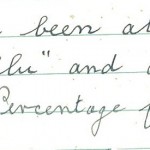 been at
flu" and
Percentage